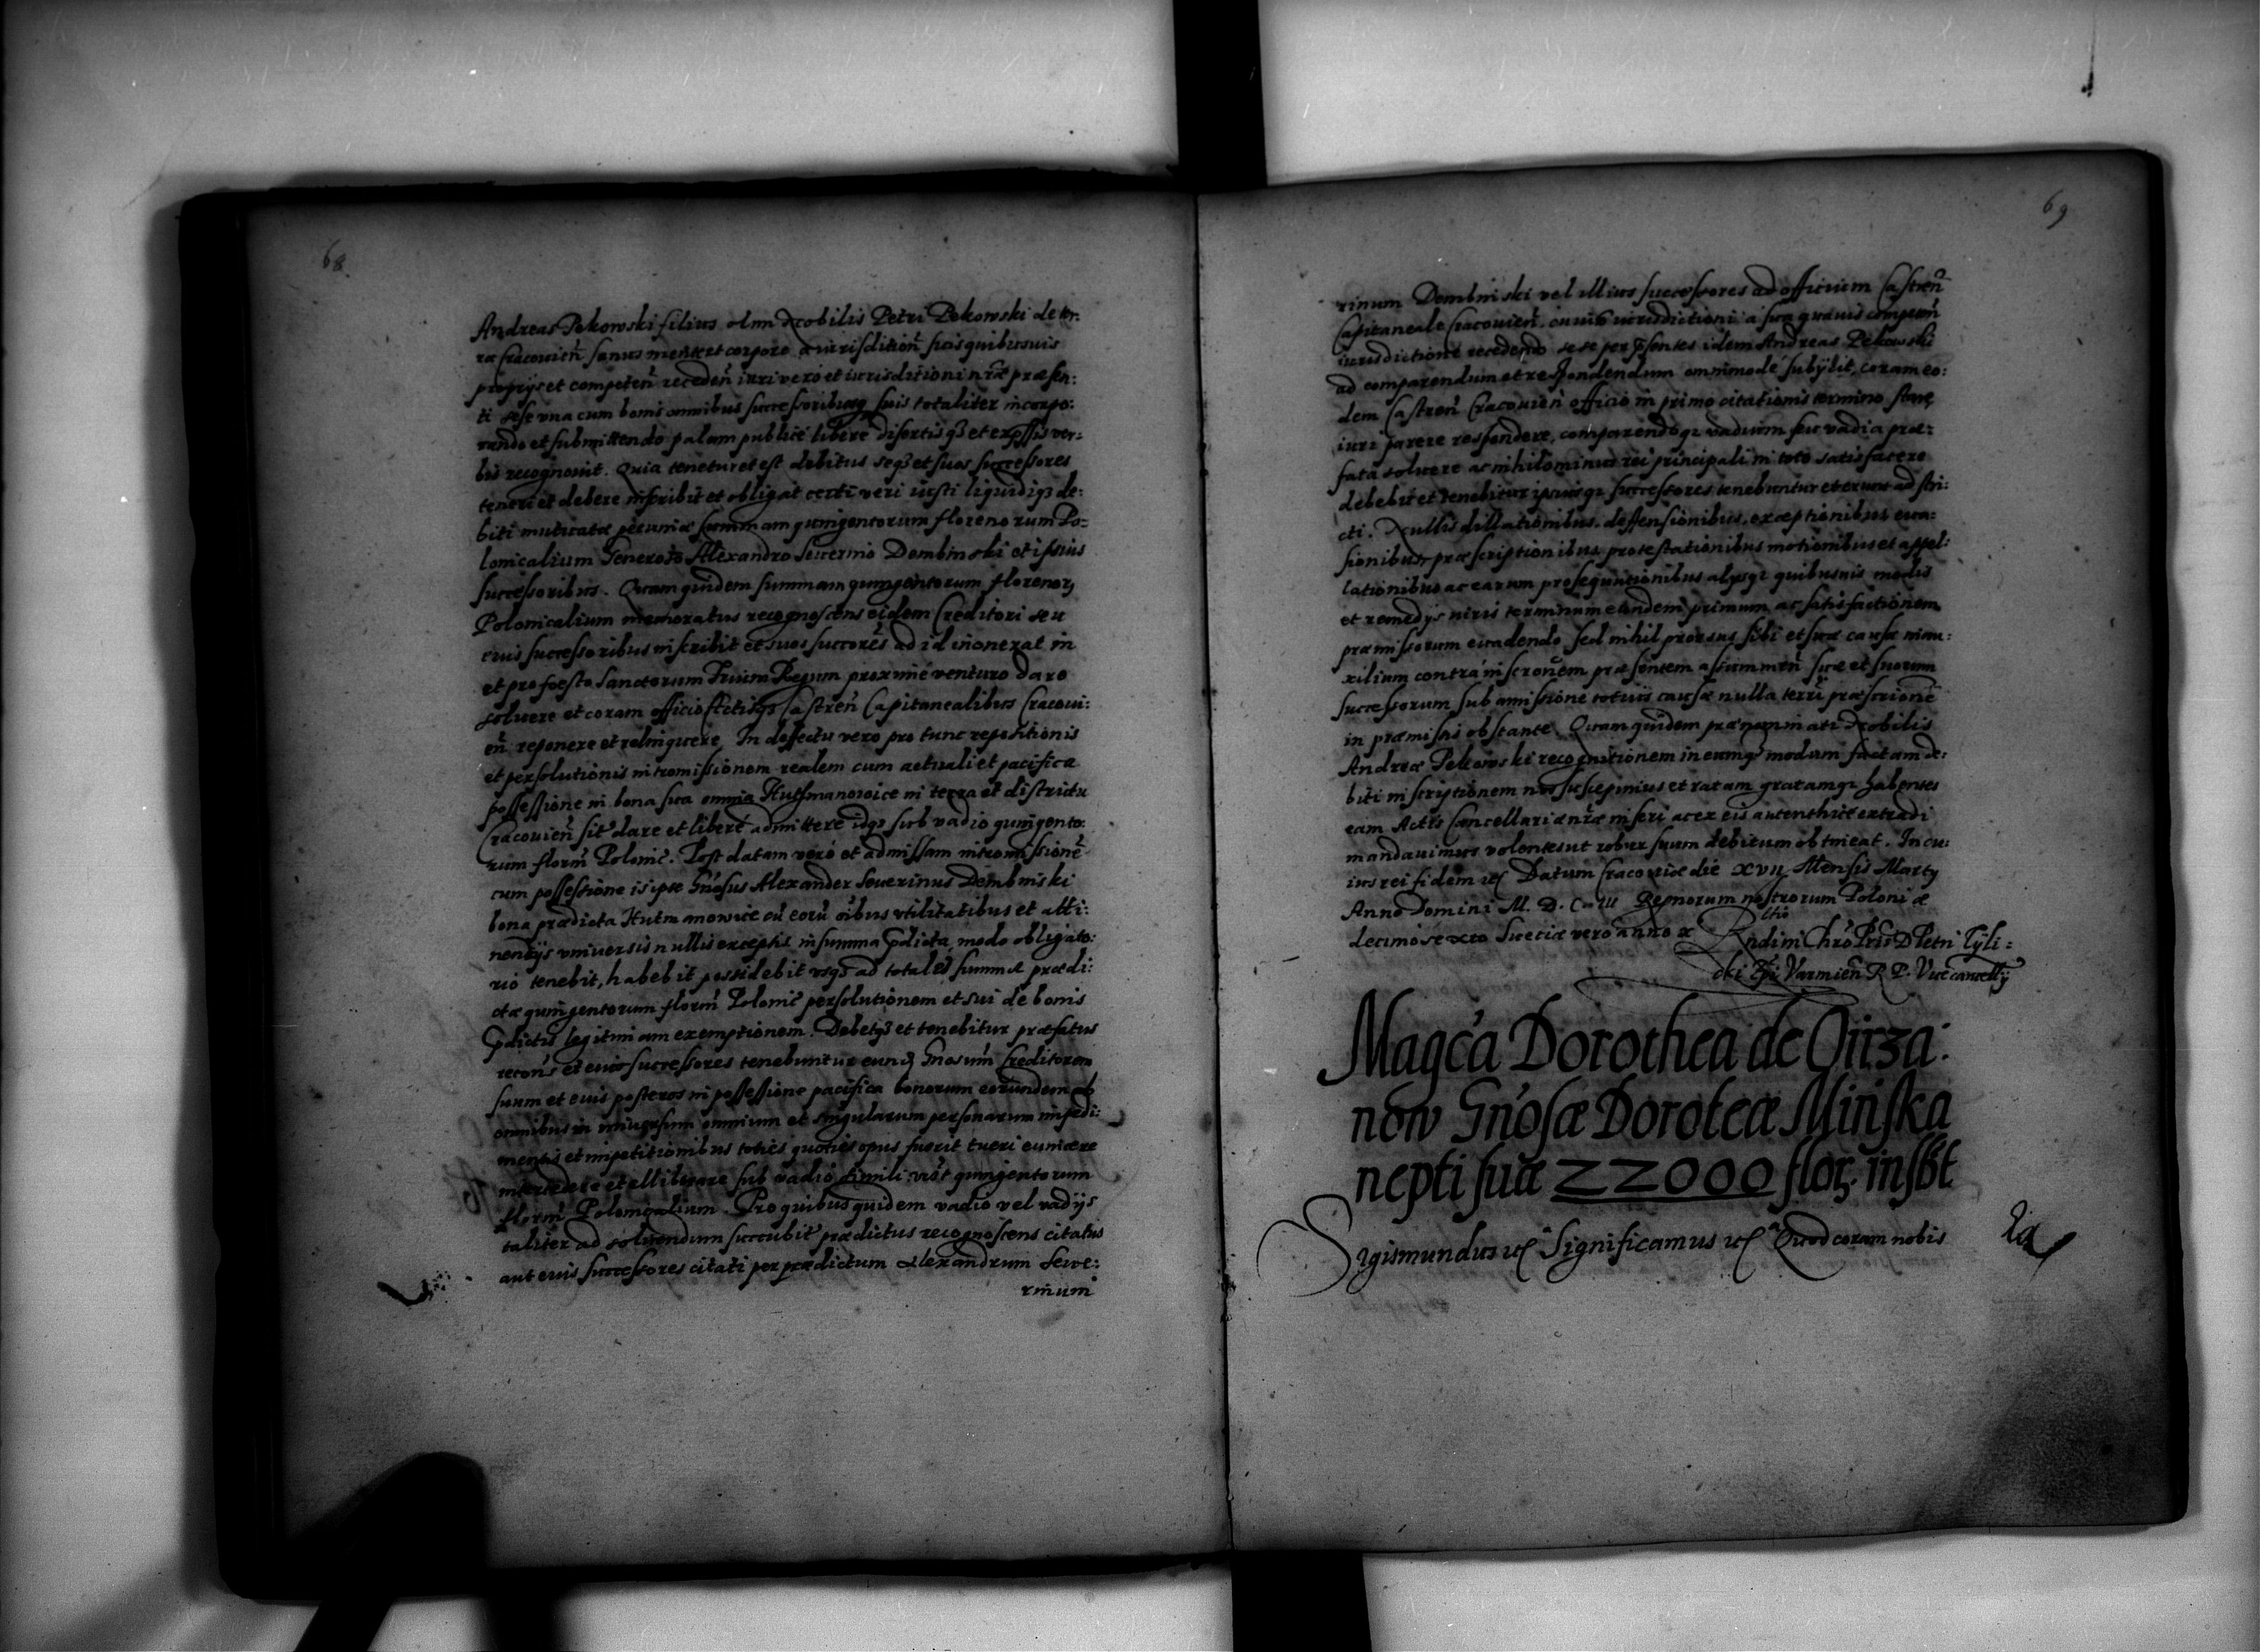 68
Andreas Pekowski filius olim Nobilis Petri Pekowski de ter:
ræ Cracovień sanus mente et corpore a iurisdition̄ suis quibusuis
proprijs et competeń recedeń iuri vero et iurisditioni nr̄æ præsen:
ti sese vna cum bonis omnibus successoribusq suis totaliter incorpo:
rando et submittendo palam publicè liberè disertisq3 et expssis ver:
bis recognouit. Quia tenetur et est debitus seq3 et suos successores
teneri et debere inscribit et obligat certi veri iusti liquidiq3 de:
biti mutuatæ pecuniæ summam quingentorum florenorum Po:
lonicalium Generoso Alexandro Seuerino Dembinski et ipsius
successoribus. Quam quidem summam quingentorum florenor3
Polonicalium memoratus recognoscens eidem Creditori seu
eius successoribus inscribit et suos succores ad id inonerat in
et pro foesto Sanctorum Trium Regum proximè venturo dare
soluere et coram officio Actisq3 Castreń Capitanealibus Cracoui:
eń reponere et relinquere. In deffectu vero pro tunc repositionis
et persolutionis intromissionem realem cum actuali et pacifica
possessione in bona sua omnia Hutfmanowice in terra et districtu
Cracovień sit dare et liberè admittere idq3 sub vadio quingento:
rum florm̄ Polonic̄. Post datam verò et admissam intromissionē
cum possessione is ipse Gńosus Alexander Seuerinus Dembinski
bona prædicta Hutmanowice cū eorū oibus vtilitatibus et atti:
nentijs vniuersis nullis exceptis in summa pdicta modo obligato:
rio tenebit, habebit possidebit vsq3 ad totalē summæ prædi:
ctæ quingentorum florm̄ Polonic̄ persolutionem et sui de bonis
pdictis legitimam exemptionem. Debetq3 et tenebitur præfatus
recoñs et eius successores tenebuntur eund Gnosum̄ Creditorem
suum et euis posteros in possessione pacifica bonorum eorundem ab
omnibus in vniuersum omnium et singularum personarum impedi:
mentis et impetitionibus toties quoties opus fuerit tueri euincere
intercedere et elliberare sub vadio simili vidt quingentorum
florm̄ Polonicalium. Pro quibus quidem vadio vel vadijs
taliter ad soluendum succubit prædictus recognoscens citatus
aut euis successores citati per prædictum Alexandrum Seve:
rinum
69
rinum Dembinski vel illius successores ad officium Castreń
Capitaneale Cracouień. cuius iurisdictioni à sua quauis competeń
iurisdictione recedendo sese per pńsentes idem Andreas Pekowski
ad comparendum et respondendum omnimodè subijcit, coram eo:
dem Castreń Cracouień officio in primo citationis termino stare
iuri parere respondere, comparendoq3 vadium seu vadia præ:
fata soluere ac nihilominus rei principali in toto satisfacere
debebit et tenebitur ipsiusq3 successores tenebuntur et erunt adstri:
cti. Nullis dillationibus. deffensionibus. exceptionibus eua:
sionibus, præscriptionibus protestationibus motionibus et appel:
lationibus ac earum prosequutionibus alijsq3 quibusuis modis
et remedijs iuris terminum eundem primum ac satisfactionem
præmissorum euadendo sed nihil prorsus sibi et suæ causæ inau:
xilium contrà inscronem præsentem assummeń suæ et suorum
successorum sub amissione totius causæ nulla terrī præscrionē
in præmissis obstante. Quam quidem prænominati Nobilis
Andreæ Pekowski recognitionem in eumq3 modum factam de:
biti inscriptionem nos suscepimus et ratam gratamq3 habentes
eam Actis Cancellariæ nr̄æ inseri ac ex eis autenthicè extradi
mandauimus volentes ut robur suum debitum obtineat. In cu:
ius rei fidem etc Datum Cracouiæ die xvij Mensis Martij
Anno Domini M. D. C. iii Regnorum nostrorum Poloniæ
decimosexto Sueciæ vero anno x Rltio Rndi in Chro Pris D Petri Tyli:
cki Epi Varmień R. P. Vicecancellij
Magc̄a Dorothea de Oirza:
now Gńosæ Doroteæ Mińska
nepti suæ 22000 flor. insbt
Sigismundus etc Significamus etc Quod coram nobis